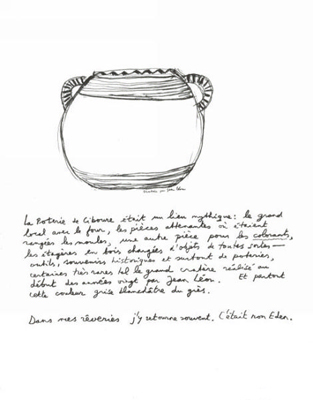 La Poterie de Ciboure était un lieu mythique : le grand
local avec le four, les pièces attenantes où étaient
rangées les moules, une autre pièce pour les colorants,
les étagères en bois chargées d'objets de toutes sortes —
outils, souvenirs historiques et surtout de poteries,
certaines très rares tel le grand cratère réalisé au
début des années vingt par Jean Léon. Et partout
cette couleur grise blanchâtre du grès.
Dans mes rêveries j'y retourne souvent. C'était mon Eden.